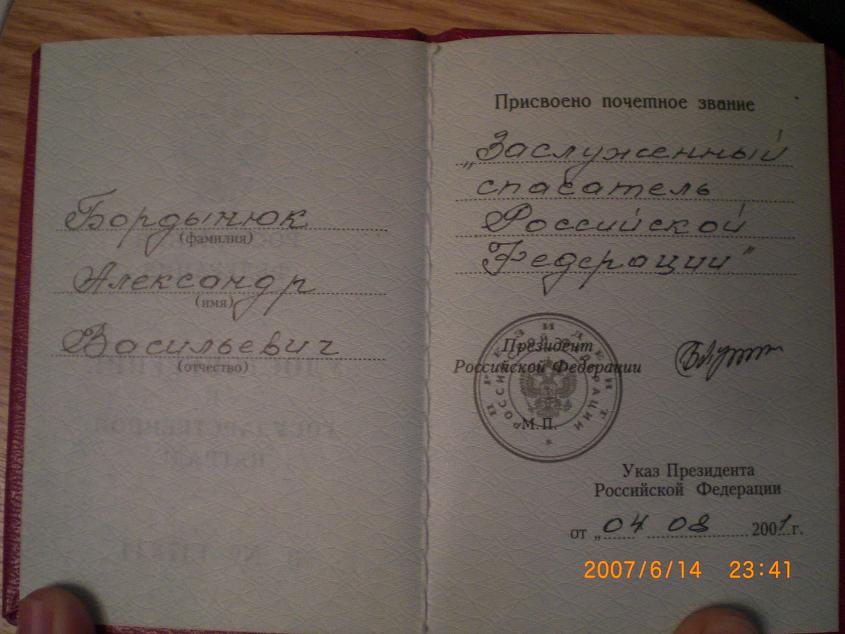 Бордынюк
(фамилия)
Александр
(имя)
Васильевич
(отчество)
Присвоено почетное звание
„Заслуженный
спасатель
Российской
Федерации”
Президент
Российской Федерации
ПРЕЗИДЕНТ
РОССИЙСКОЙ ФЕДЕРАЦИИ
М.П.
Указ Президента
Российской Федерации
от „04 08 2001 г.
2007/6/14 23:41